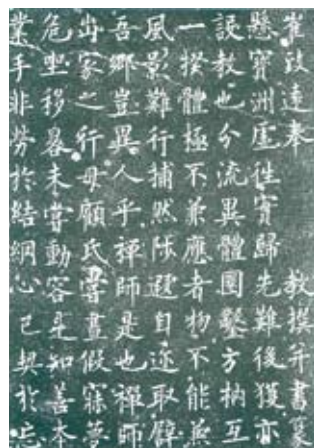 崔致遠奉 教撰并書篆
懸寶洲虛往實歸先難後獲亦
設教也分流異體圓鑿方枘互
一揆體極不兼應者物不能兼
風影難行捕然陟遐自邇取譬
吾鄉豈異人乎禪師是也禪師
出家之行母顧氏嘗晝假寐夢
危坐移晷未嘗動容足知善本
業手非勞於結網心已契於忘